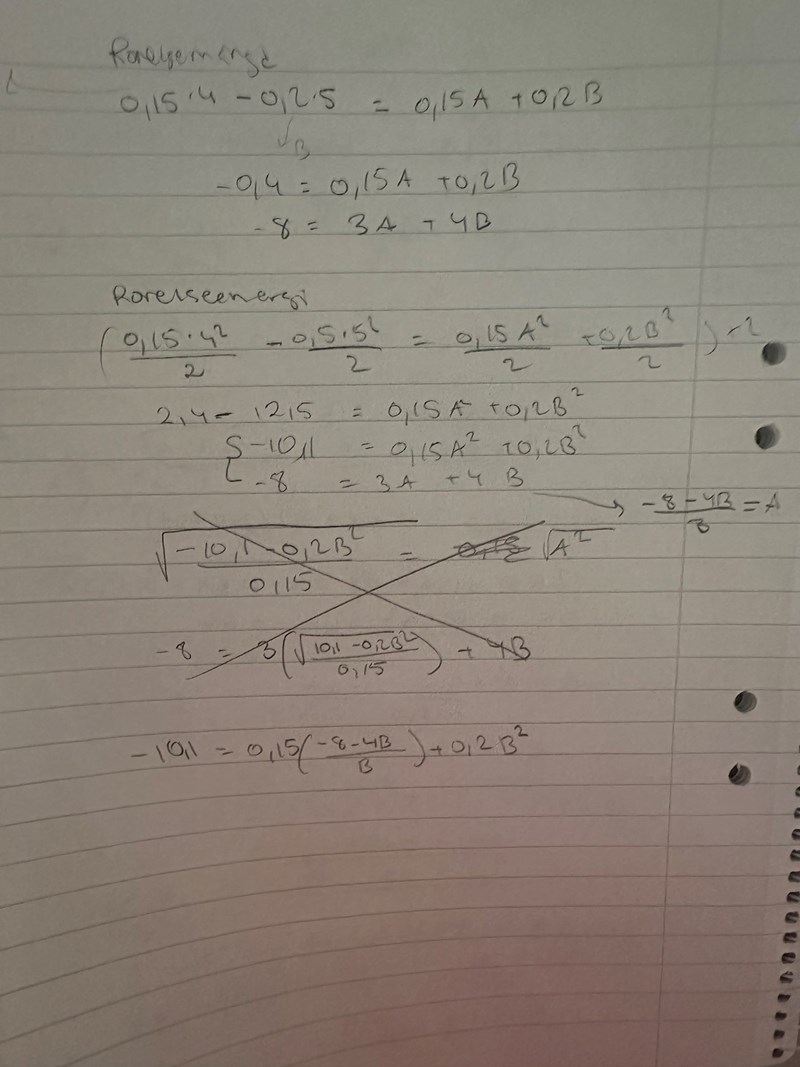 Rorelsemängd
0,15·4 - 0,2·5 = 0,15A + 0,2B
B
-0,4 = 0,15A + 0,2B
-8 = 3A + 4B
Rorelseenergi
(0,15·4²/2 - 0,5·5²/2 = 0,15A²/2 + 0,2B²/2)·2
2,4 - 12,5 = 0,15A² + 0,2B²
-10,1 = 0,15A² + 0,2B²
-8 = 3A + 4B → (-8-4B)/3 = A
√((-10,1-0,2B²)/0,15) = √A²
-8 = 3(√((10,1-0,2B²)/0,15)) + 4B
-10,1 = 0,15((-8-4B)/B) + 0,2B²